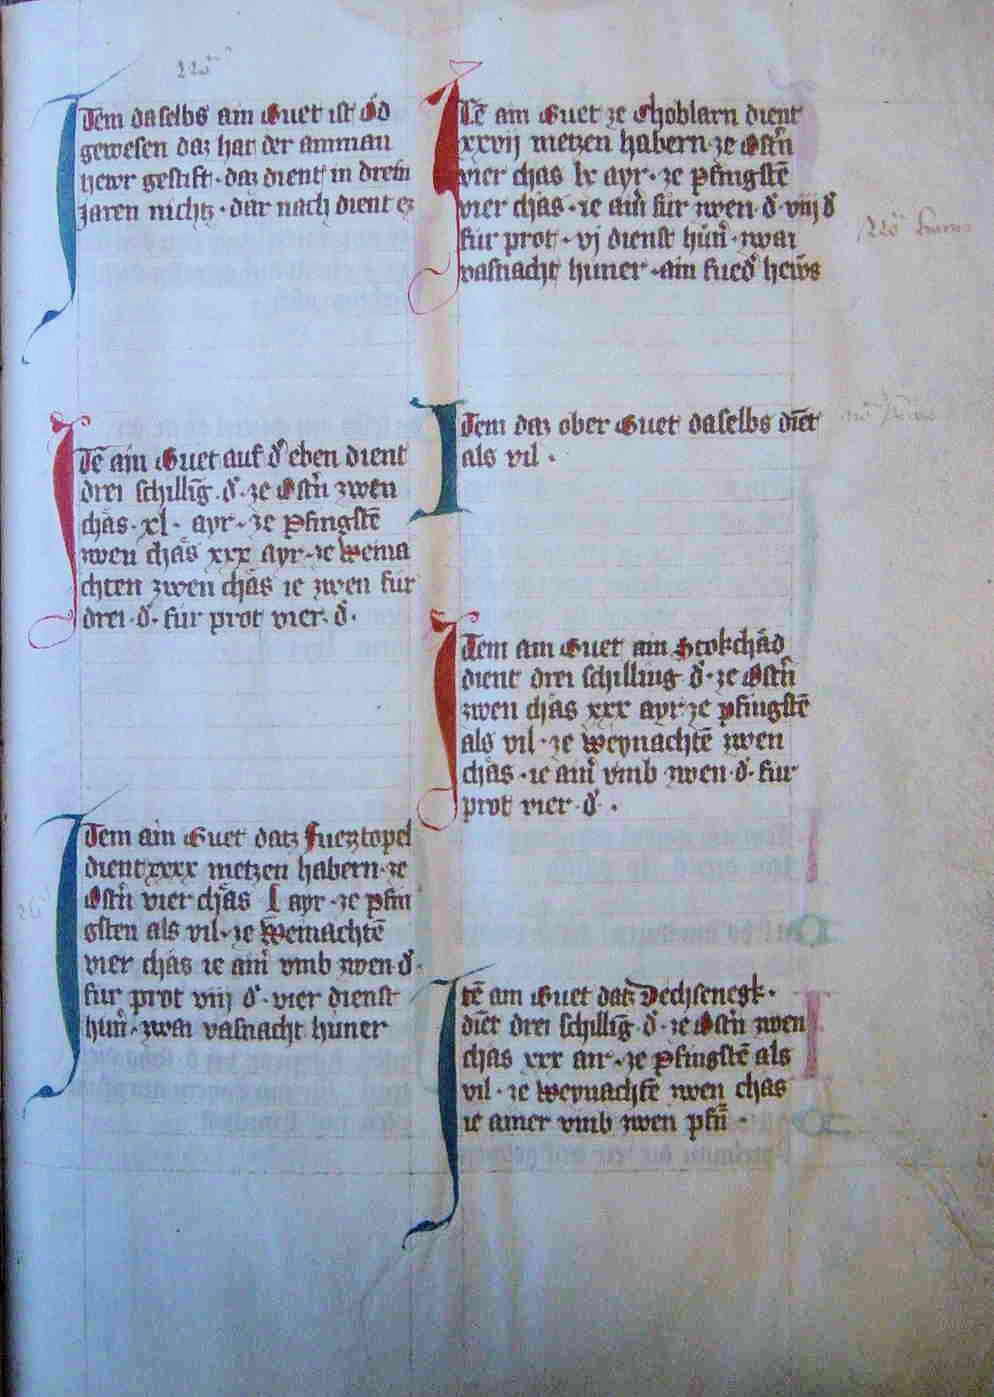 Item daselbs ain Guet ist öd
gewesen daz hat der amman
hewr gestift · daz dient in drein
jaren nichtz · dar nach dient ez
Itē ain Guet auf d' eben dient
drei schillinḡ · d̄ · ze Ostn̄ zwen
chäs · xl · ayr · ze Pfingstē
zwen chäs xxx ayr · ze Weina
chten zwen chäs ie zwen für
drei · d̄ · für prot vier · d̄ ·
Item ain Guet datz Fuegtopel
dient xxxx metzen habern · ze
Ostn̄ vier chäs l ayr · ze pfin
gsten als vil · ze Weinachtē
vier chäs ie ain̄ vmb zwen · d̄ ·
für prot viij d̄ · vier dienst
hün̄ · zwai vasnacht hüner
Itē ain Guet ze Choblarn dient
xxvij metzen habern · ze Ostn̄
vier chäs lx ayr · ze pfingstē
vier chäs · ie ain̄ für zwen · d̄ · viij d̄
für prot · vj dienst hün̄ · zwai
vasnacht hüner · ain fued' hew̄s
Item daz ober Guet daselbs diēt
als vil ·
Item ain Guet ain Stokchäd
dient drei schilling d̄ · ze Ostn̄
zwen chäs xxx ayr ze pfingstē
als vil · ze Weynachtē zwen
chäs · ie ain̄ vmb zwen · d̄ · für
prot vier · d̄ ·
Itē ain Guet datz Dechsenegk ·
diēt drei schillinḡ · d̄ · ze Ostn̄ zwen
chäs xxx air · ze Pfingstē als
vil · ze Weynachtē zwen chäs
ie ainer vmb zwen pfn̄ ·